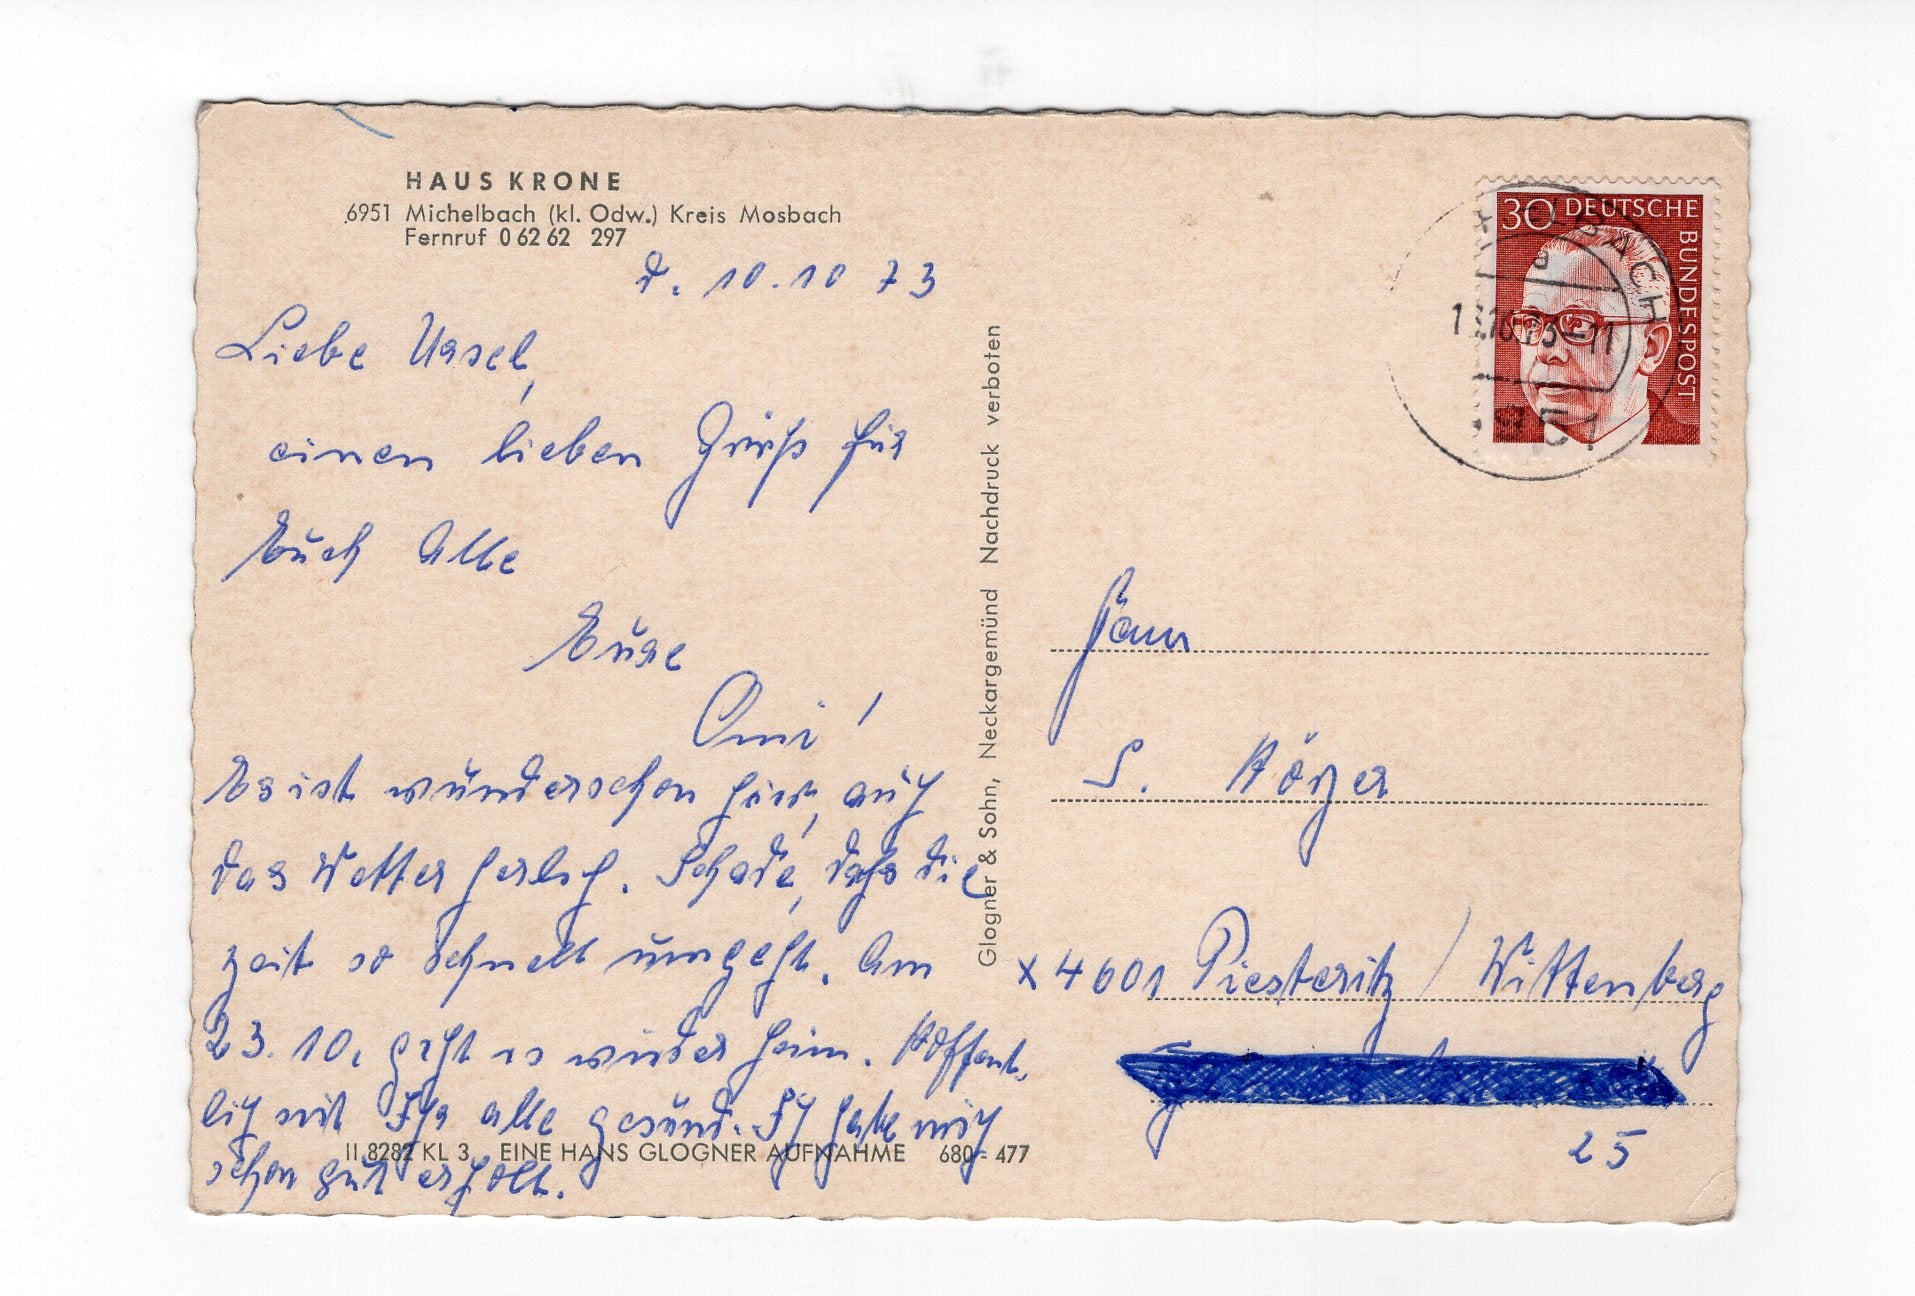 HAUS KRONE
6951 Michelbach (kl. Odw.) Kreis Mosbach
Fernruf 0 62 62 297
d. 10.10 73
Liebe Ursel,
einen lieben Gruß für
Euch Alle
Eure
Omi!
Es ist wunderschön hier, auch
das Wetter herlich. Schade, daß die
Zeit so schnell umgeht. Am
23.10. geht es wieder heim. Hoffent-
lich seit Ihr alle gesund. Ich habe mich
schon gut erholt.
II 8282 KL 3 EINE HANS GLOGNER AUFNAHME 680 - 477
Glogner & Sohn, Neckargemünd Nachdruck verboten
30 DEUTSCHE BUNDESPOST
BACH
a
Frau
S.
X 4601 Piesteritz / Wittenberg
25